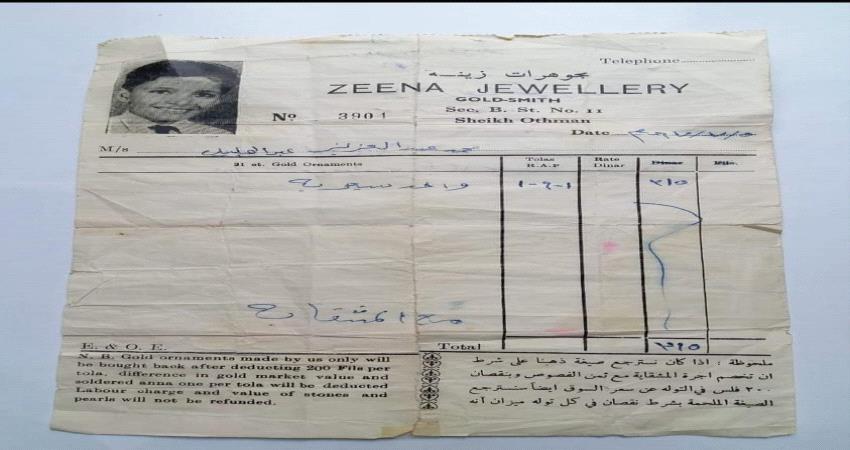 Telephone
مجوهرات زينه
ZEENA JEWELLERY
GOLD-SMITH
Sec. B. St. No. 11
Sheikh Othman
Nº 3904
Date
M/s محمد عبد العزيز عبد الجليل
21 ct. Gold Ornaments
Tolas R.A.P
Rate Dinar
Dinar
Fils.
١-٦-١
٣١٥
مع المشقاب
E. & O. E.
Total ٣١٥
N. B. Gold ornaments made by us only will
be bought back after deducting 200 Fils per
tola, difference in gold market value and
soldered anna one per tola will be deducted
Labour charge and value of stones and
pearls will not be refunded.
ملحوظة : اذا كان نسترجع صيغة ذهبنا على شرط
ان تخصم اجرة المشقاية مع ثمن الفصوص وبنقصان
٢٠٠ فلس في التوله عن سعر السوق ايضاً سنسترجع
الصيغة الملحمة بشرط نقصان في كل توله ميزان أنه